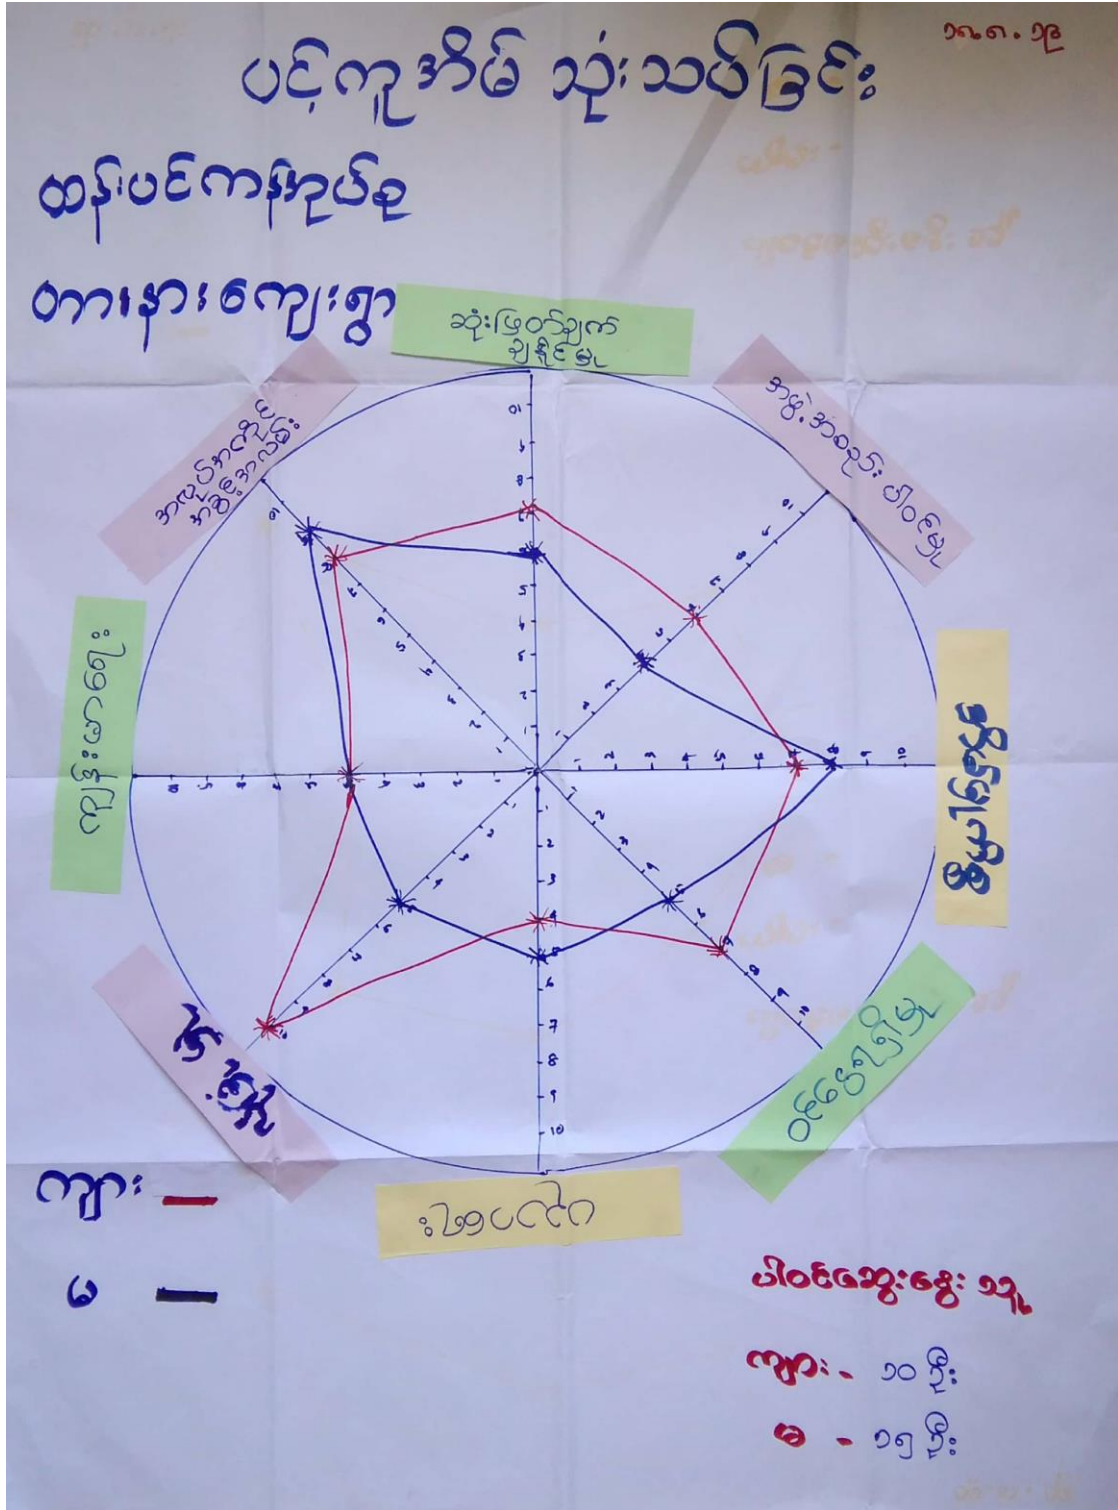 ၁၈.၈.၁၉
ပင့်ကူအိမ် သုံးသပ်ခြင်း
ထန်းပင်ကန်အုပ်စု
တာနားကျေးရွာ
ဆုံးဖြတ်ချက်
ချနိုင်မှု
အဖွဲ့အစည်း ပါဝင်မှု
စီမွပါဝ်မွေ
ဝင်ငွေရရှိမှု
ပညာရေး
လုံခြုံမှု
ကျန်းမာရေး
အလုပ်အကိုင်
အခွင့်အလမ်း
1 2 3 4 5 6 7 8 9 10
ကျား
မ
ပါဝင်ဆွေးနွေး သူ
ကျား - ၁၀ ဦး
မ - ၁၅ ဦး